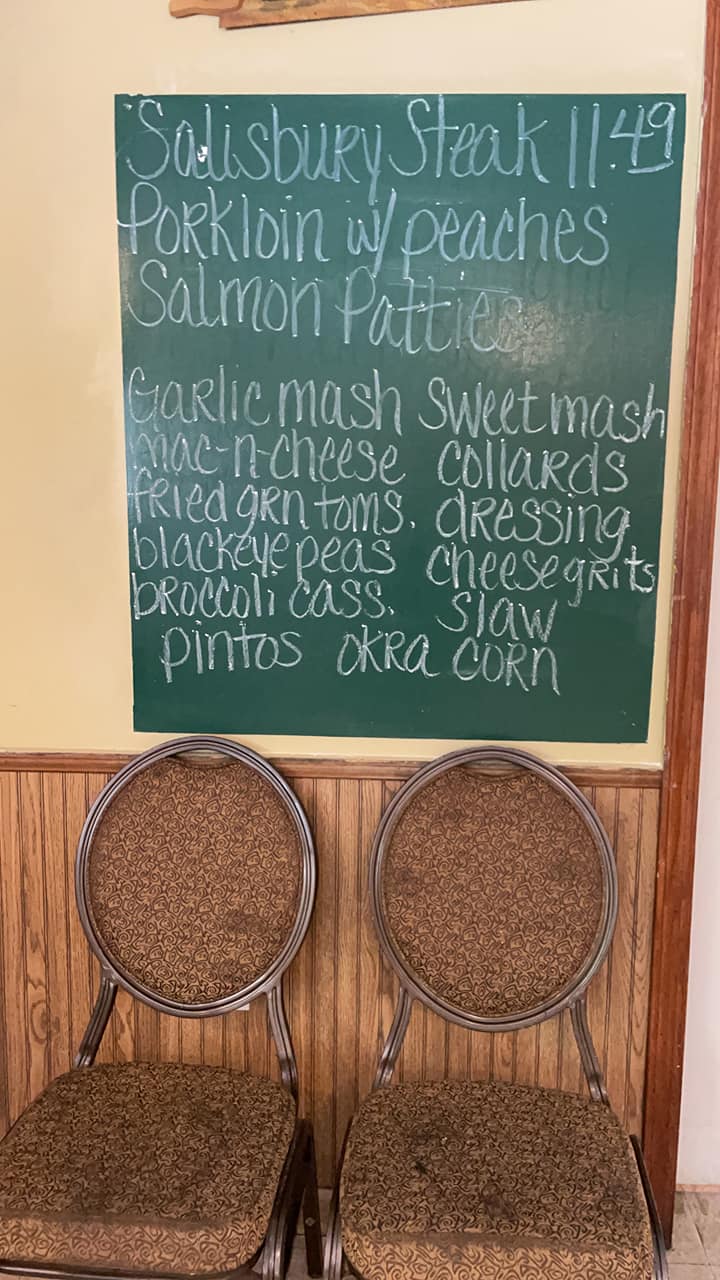 Salisbury Steak 11.49
Porkloin w/ peaches
Salmon Patties
Garlic mash Sweet mash
mac-n-cheese collards
fried grn toms. dressing
blackeye peas cheese grits
broccoli cass. slaw
pintos okra corn